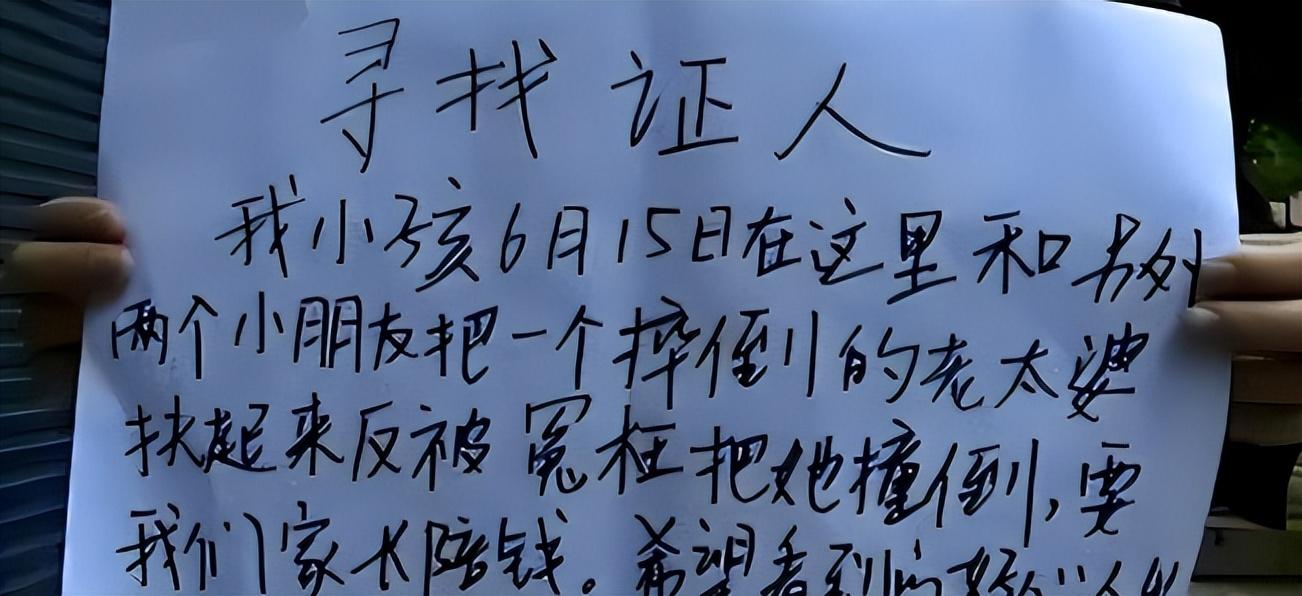 寻找证人
我小孩6月15日在这里和另外
两个小朋友把一个摔倒的老太婆
扶起来反被冤枉把她撞倒,要
我们家长陪钱。希望看到的好心人